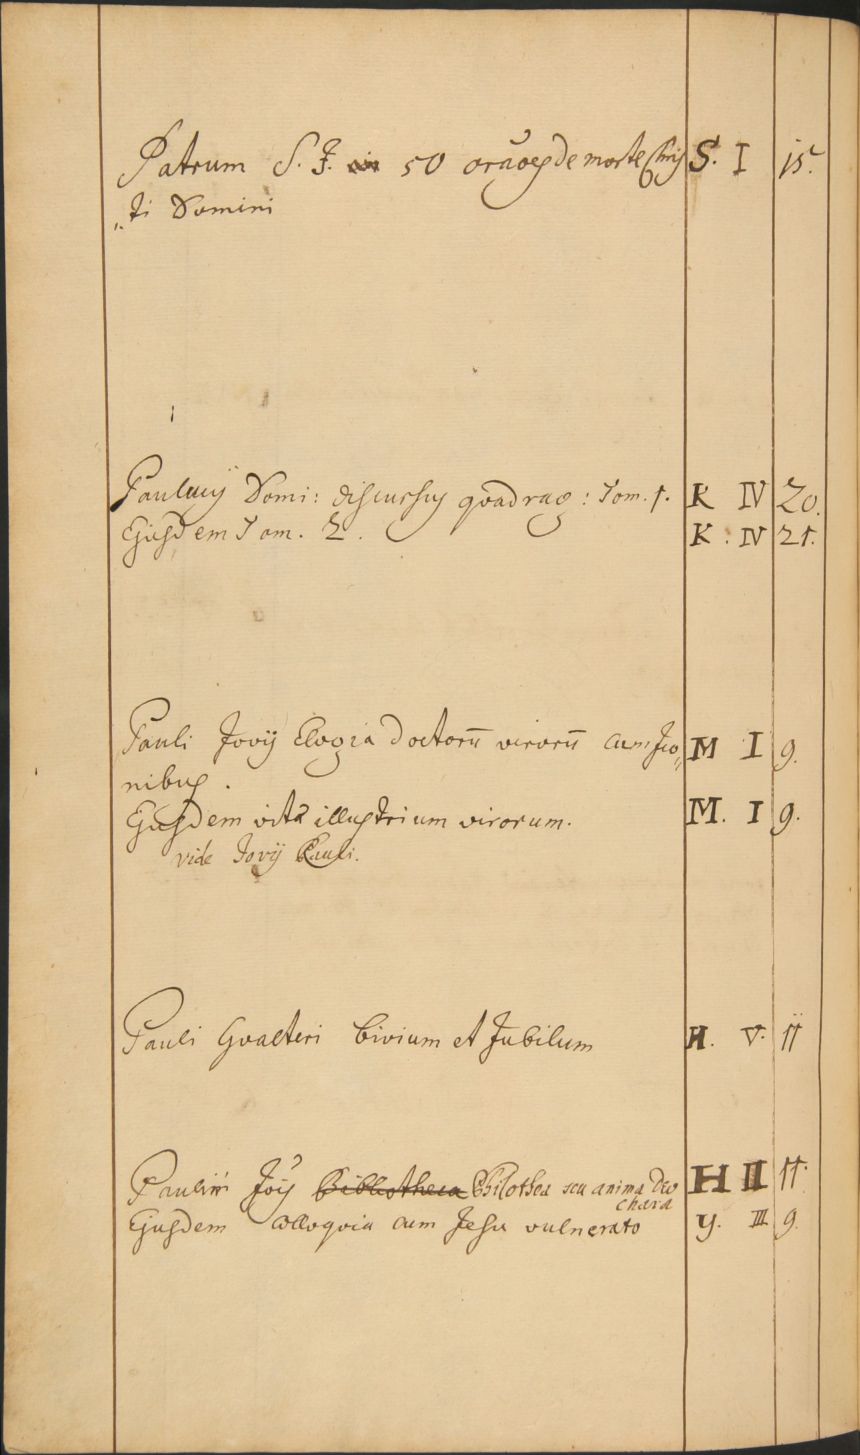 Patrum S. J. 50 orãoes de morte Chris S. I 15.
„ti Domini
Paulucij Domi: discursus qvadrag: Tom. 1. K IV 20.
Ejusdem Tom. 2. K. IV 21.
Pauli Jovij Elogia doctorũ virorũ cum Ico„ M I 9.
nibus.
Ejusdem vita illustrium virorum. M. I 9.
vide Jovij Pauli.
Pauli Gvalteri bivium et Jubilum H. V. 11
Paulini Joĩs Bibliotheca Philothea seu anima Deo H II 11.
chara
Ejusdem Colloqvia cum Jesu vulnerato y. III 9.